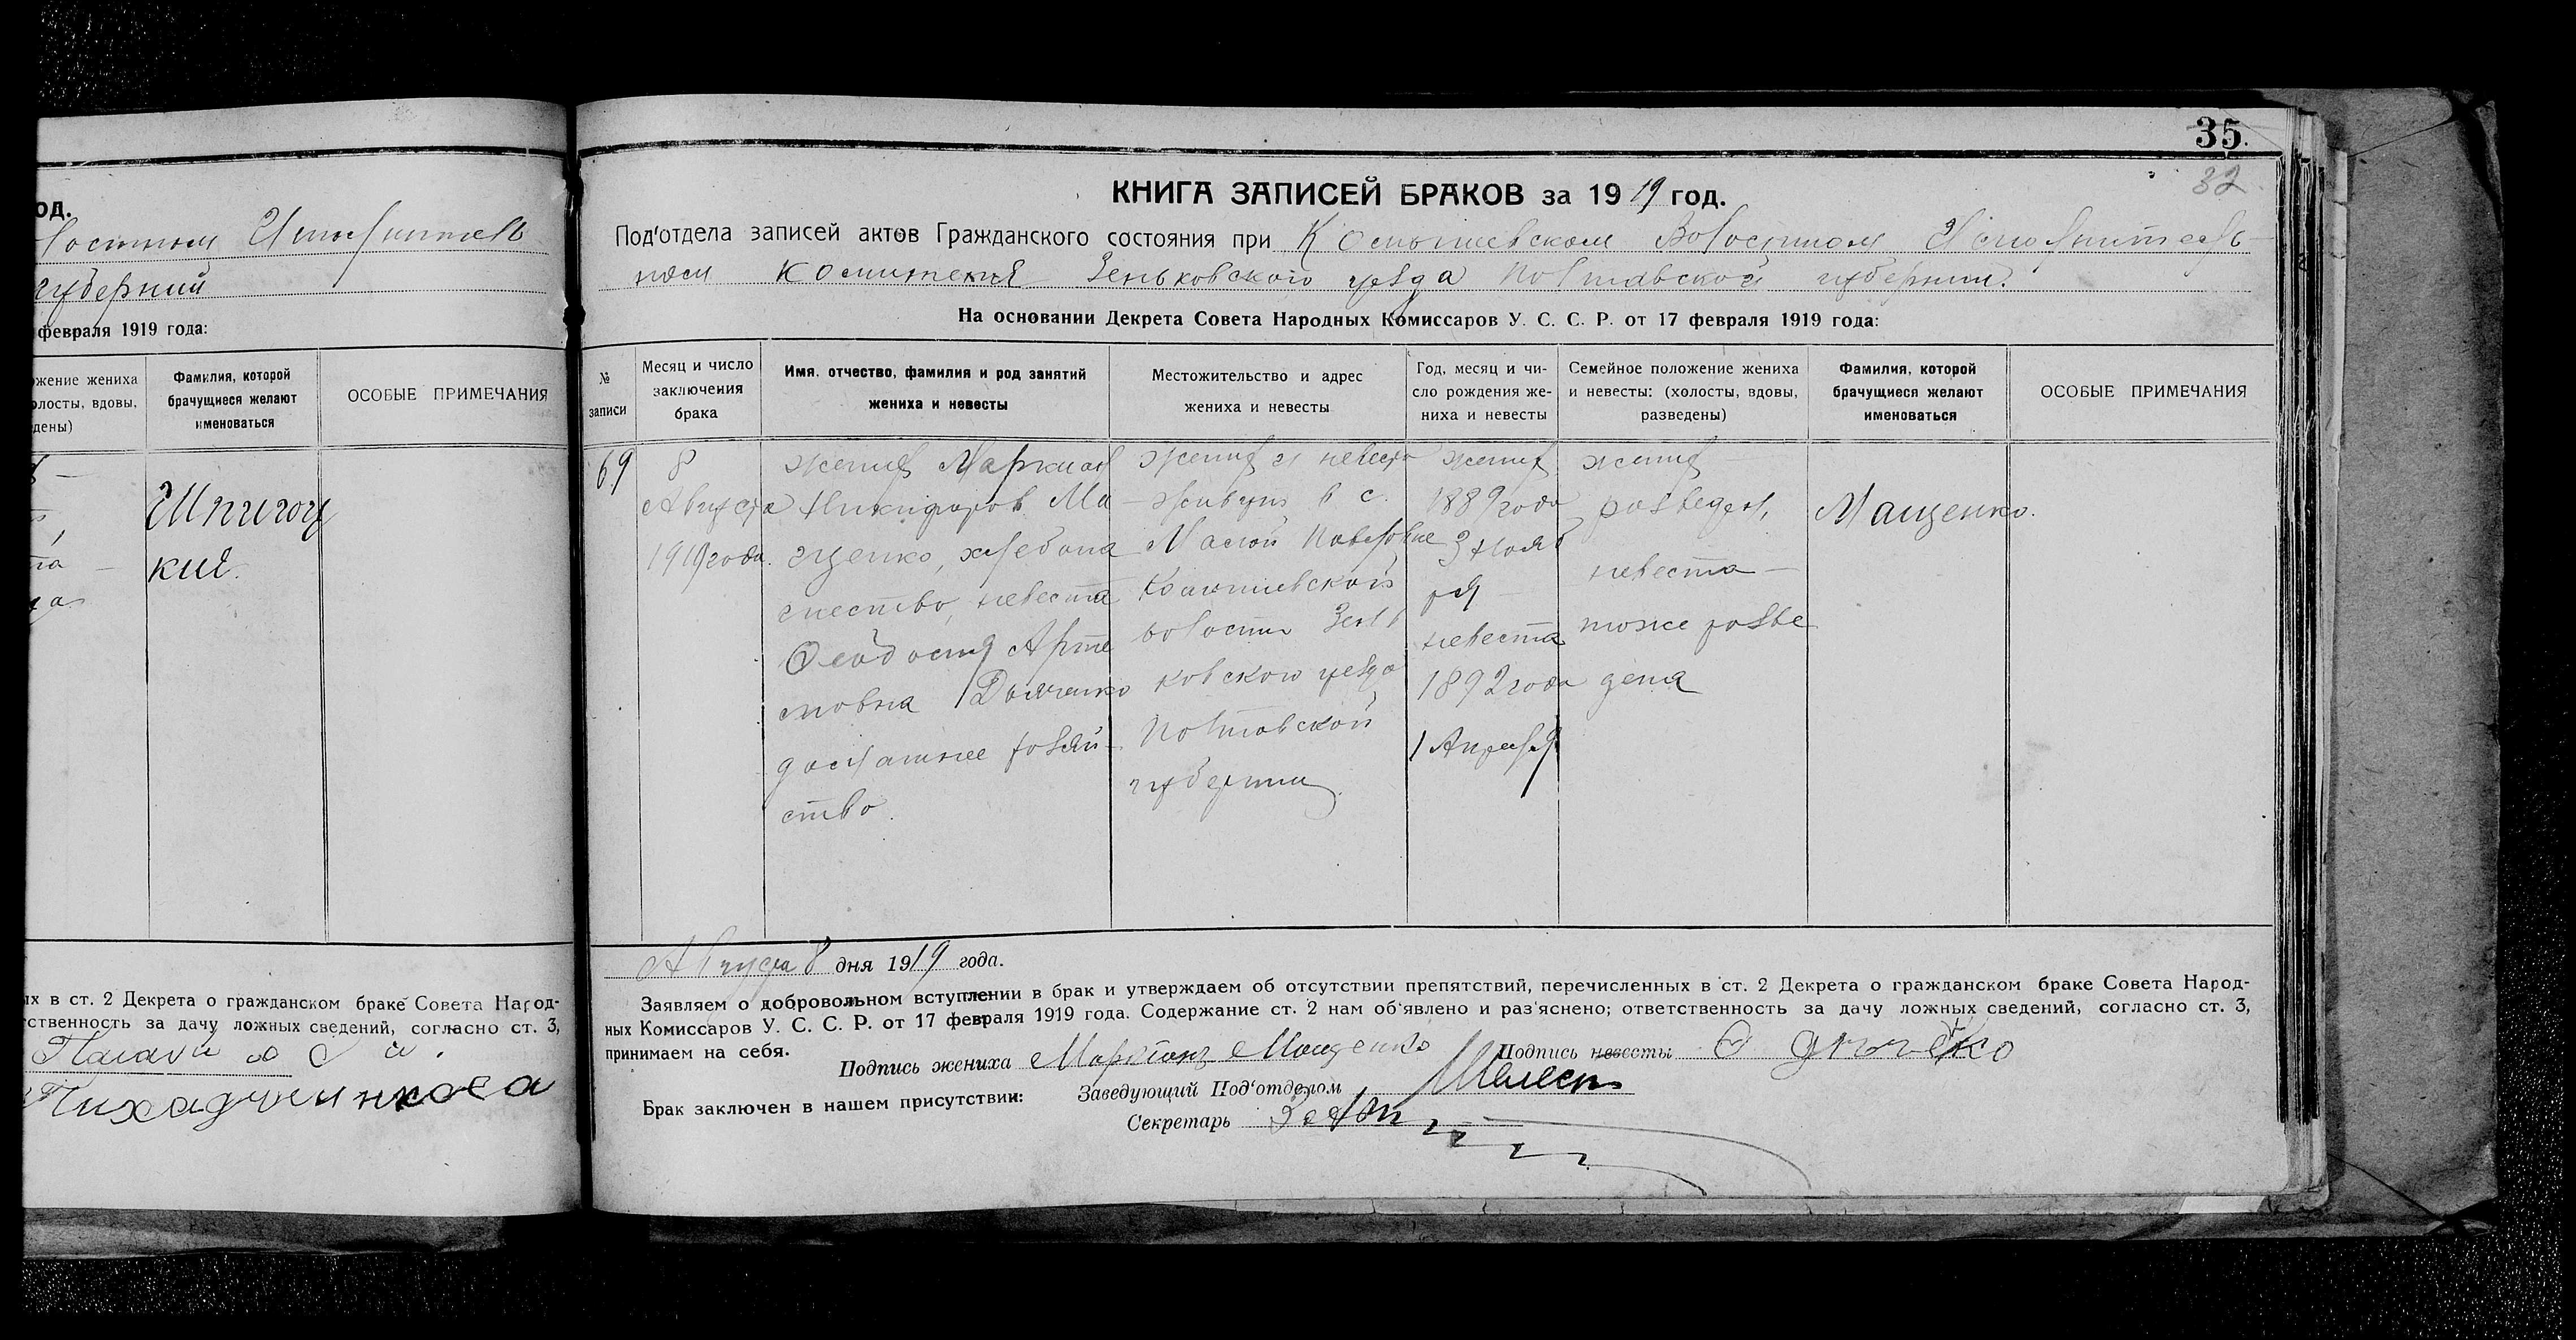 од.
губерний
февраля 1919 года:
жение жениха
олосты, вдовы,
дены)
Фамилия, которой
брачущиеся желают
именоваться
ОСОБЫЕ ПРИМЕЧАНИЯ
Шпигоц
кие.
ых в ст. 2 Декрета о гражданском браке Совета Народ-
тственность за дачу ложных сведений, согласно ст. 3,
35.
32
КНИГА ЗАПИСЕЙ БРАКОВ за 1919 год.
Под'отдела записей актов Гражданского состояния при Комышевском Волостном Исполнитель-
ном комитете Зеньковского уезда Полтавской губернии.
На основании Декрета Совета Народных Комиссаров У. С. С. Р. от 17 февраля 1919 года:
№
записи
Месяц и число
заключения
брака
Имя, отчество, фамилия и род занятий
жениха и невесты
Местожительство и адрес
жениха и невесты
Год, месяц и чи-
сло рождения же-
ниха и невесты
Семейное положение жениха
и невесты: (холосты, вдовы,
разведены)
Фамилия, которой
брачущиеся желают
именоваться
ОСОБЫЕ ПРИМЕЧАНИЯ
69
8
Августа
1919 года.
жених Маркиан
Никифоров Ма
щенко, хлебопа
шество, невеста
Феодосия Арте
мовна
домашнее хозяй-
ство.
жених и невеста
живут в с.
Малой Павловке
Комышевской
волости Зень
ковского уезда
Полтавской
губернии.
жених
1889 года
3 Нояб
ря
невеста
1892 года
1 Апреля
жених
разведен,
невеста —
тоже разве
дена
Мащенко.
Августа 8 дня 1919 года.
Заявляем о добровольном вступлении в брак и утверждаем об отсутствии препятствий, перечисленных в ст. 2 Декрета о гражданском браке Совета Народ-
ных Комиссаров У. С. С. Р. от 17 февраля 1919 года. Содержание ст. 2 нам об'явлено и раз'яснено; ответственность за дачу ложных сведений, согласно ст. 3,
принимаем на себя.
Подпись жениха Маркиянъ Мащенко Подпись невесты
Брак заключен в нашем присутствии:
Заведующий Под'отделом
Секретарь